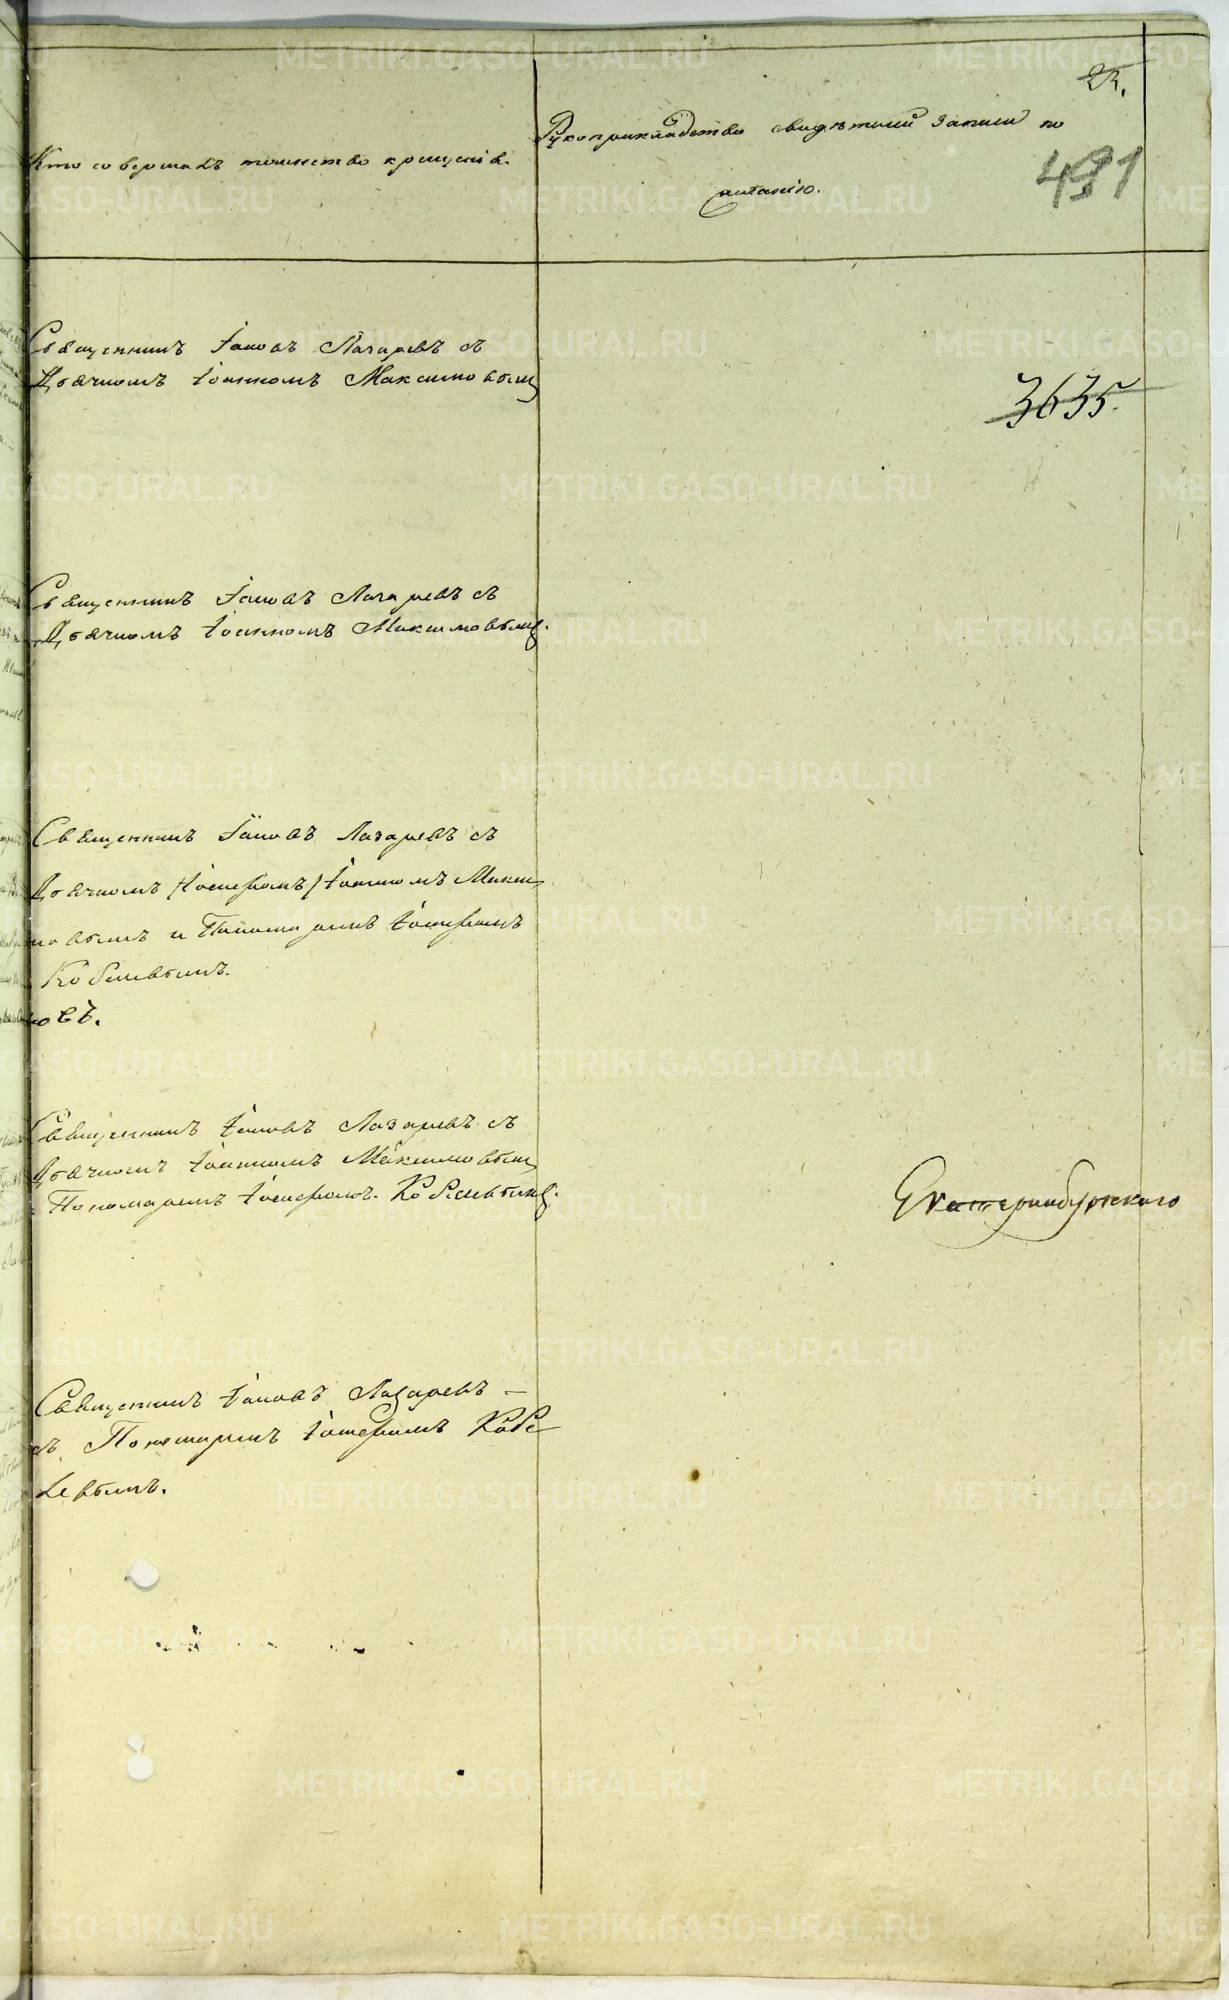 23.
Кто совершалъ таинство крещенія.
Рукоприкладство свидѣтелей записи по
желанію.
491
Священникъ Іаковъ Лазаревъ съ
Дьячкомъ Іоанномъ Максимовымъ
3635.
Священникъ Іаковъ Лазаревъ съ
Дьячкомъ Іоанномъ Максимовымъ.
Священникъ Іаковъ Лазаревъ съ
Дьячкомъ /Іосифомъ/ Іоанномъ Макси
мовымъ и Пономаремъ Іосифомъ
Кобелевымъ.
новъ.
Священникъ Іаковъ Лазаревъ съ
Дьячкомъ Іоанномъ Максимовымъ
Пономаремъ Іосифомъ Кобелевымъ.
Екатеринбургскаго
Священникъ Іаковъ Лазаревъ —
съ Пономаремъ Іосифомъ Кобе
левымъ.
METRIKI.GASO-URAL.RU